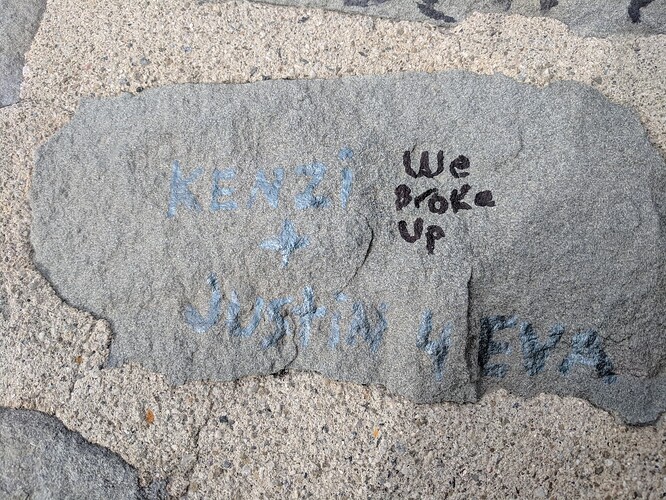 KENZi
+
JUStiN 4 EVA
We
Broke
Up